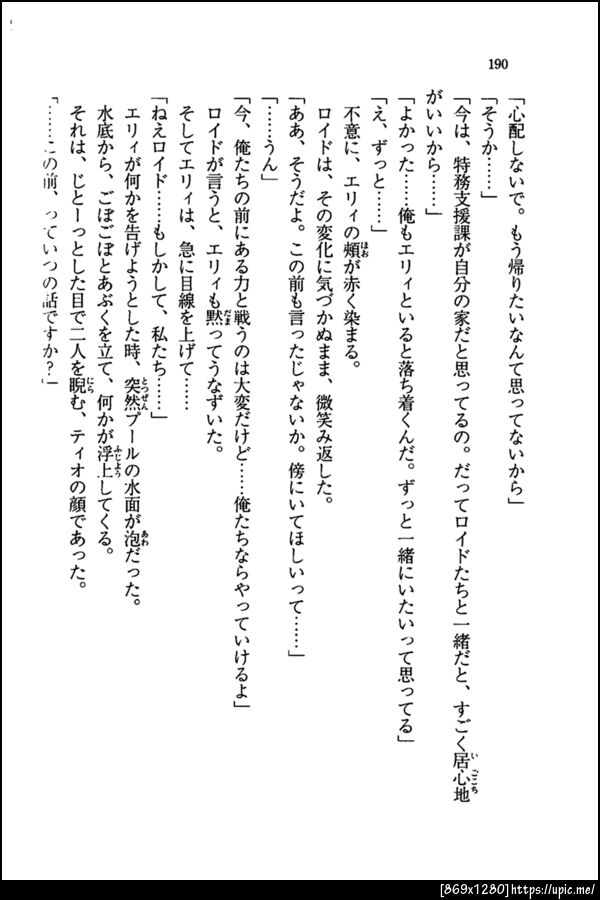 190
「心配しないで。もう帰りたいなんて思ってないから」
「そうか……」
「今は、特務支援課が自分の家だと思ってるの。だってロイドたちと一緒だと、すごく居心地
がいいから……」
「よかった……俺もエリィといると落ち着くんだ。ずっと一緒にいたいって思ってる」
「え、ずっと……」
不意に、エリィの頬が赤く染まる。
ロイドは、その変化に気づかぬまま、微笑み返した。
「ああ、そうだよ。この前も言ったじゃないか。傍にいてほしいって……」
「……うん」
「今、俺たちの前にある力と戦うのは大変だけど……俺たちならやっていけるよ」
ロイドが言うと、エリィも黙ってうなずいた。
そしてエリィは、急に目線を上げて……
「ねえロイド……もしかして、私たち……」
エリィが何かを告げようとした時、突然プールの水面が泡だった。
水底から、ごぼごぼとあぶくを立て、何かが浮上してくる。
それは、じとーっとした目で二人を睨む、ティオの顔であった。
「……この前、っていつの話ですか？」
[869x1280]https://upic.me/